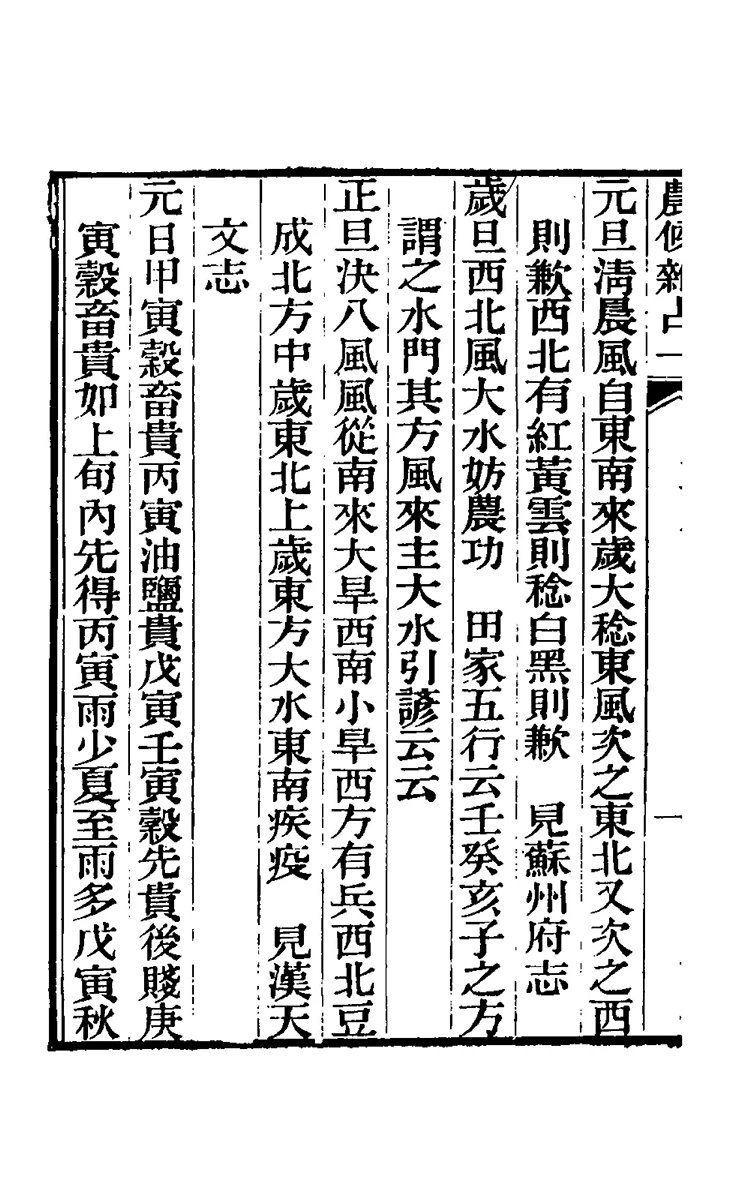 農候雜占一
元旦淸晨風自東南來歲大稔東風次之東北又次之西
則歉西北有紅黃雲則稔白黑則歉　見蘇州府志
歲旦西北風大水妨農功　田家五行云壬癸亥子之方
謂之水門其方風來主大水引諺云云
正旦決八風風從南來大旱西南小旱西方有兵西北豆
成北方中歲東北上歲東方大水東南疾疫　見漢天
文志
元日甲寅穀畜貴丙寅油鹽貴戊寅壬寅穀先貴後賤庚
寅穀畜貴如上旬內先得丙寅雨少夏至雨多戊寅秋